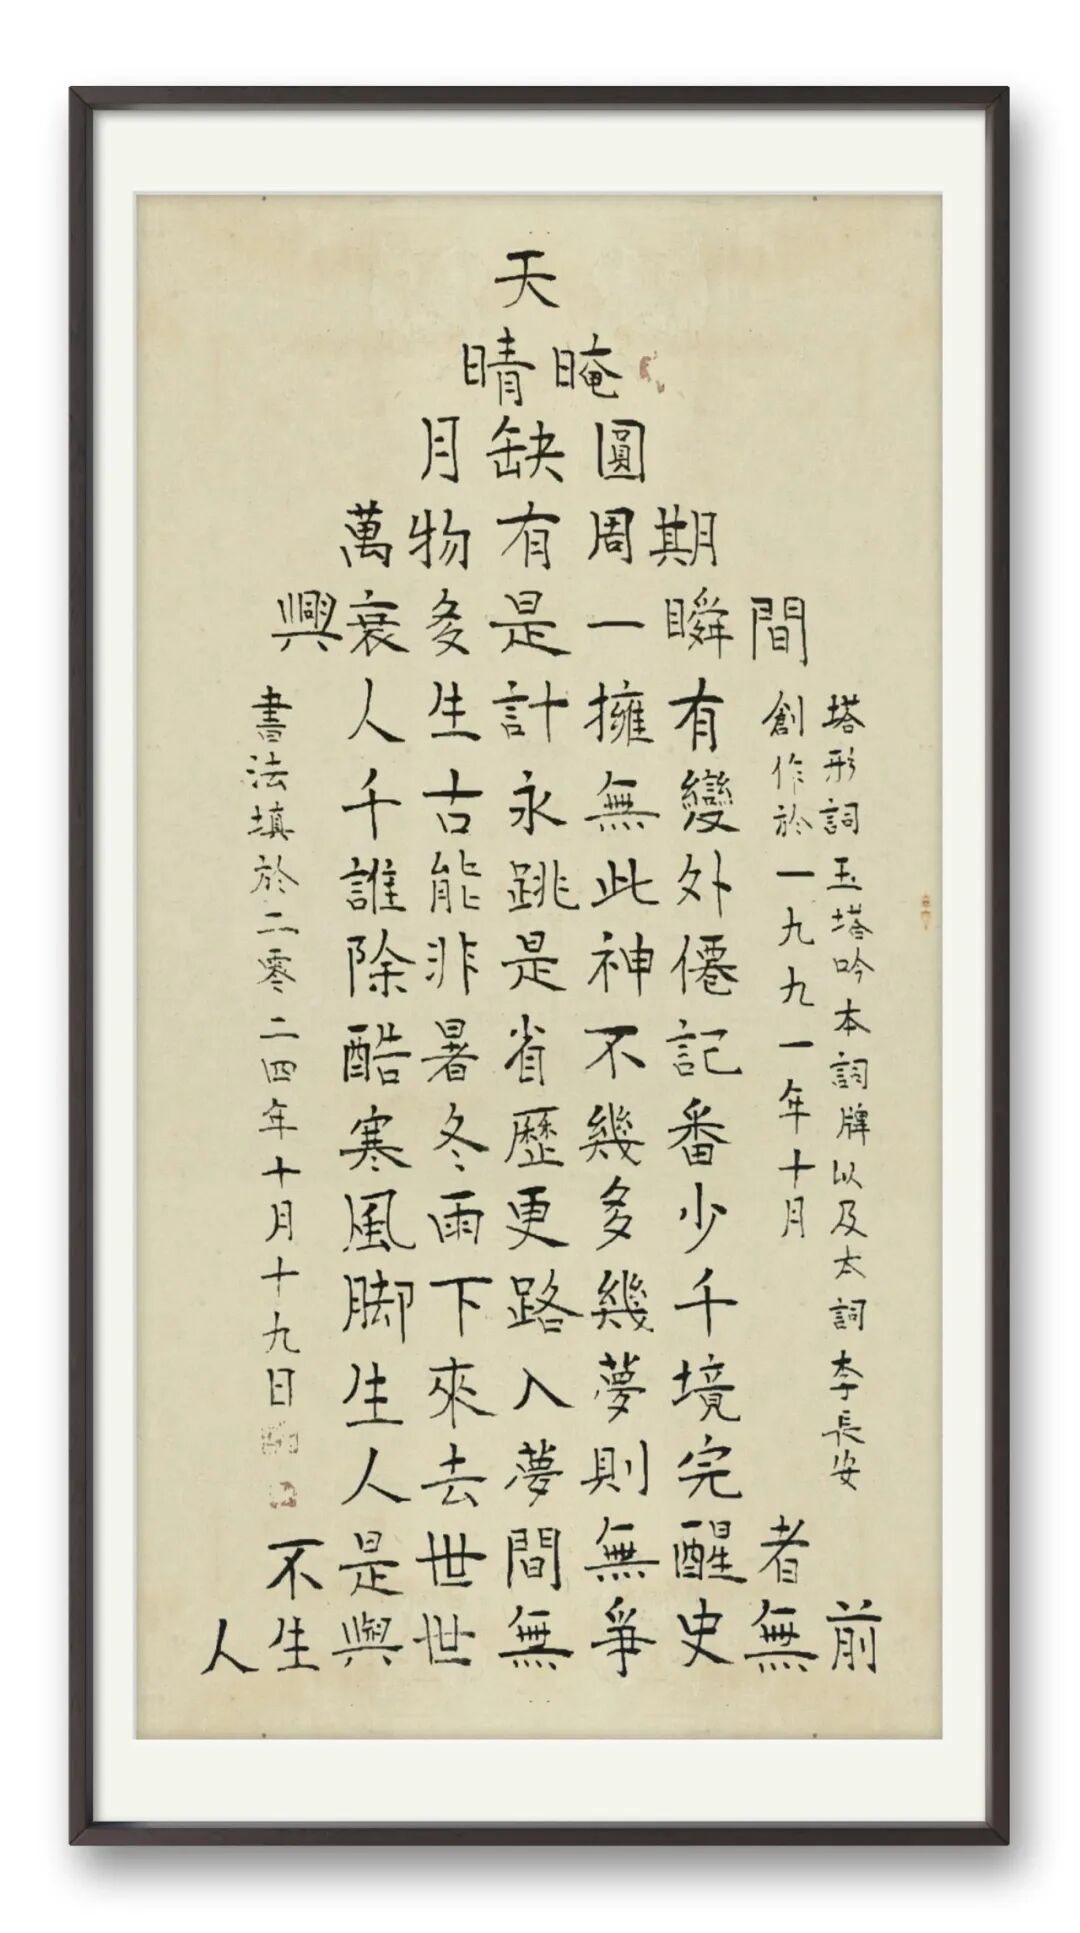 天
晴晻
月缺圓
萬物有周期
興衰多是一瞬間
人生計擁有
千古永無變
誰能跳此外
除非是神僊
酷暑省不記
寒冬歷幾番
風雨更多少
脚下路幾千
生來入夢境
人去夢則完
不是世間無醒者
人生與世無爭史無前
塔形詞玉塔吟本詞牌以及本詞李長安
創作於一九九一年十月
書法填於二零二四年十月十九日